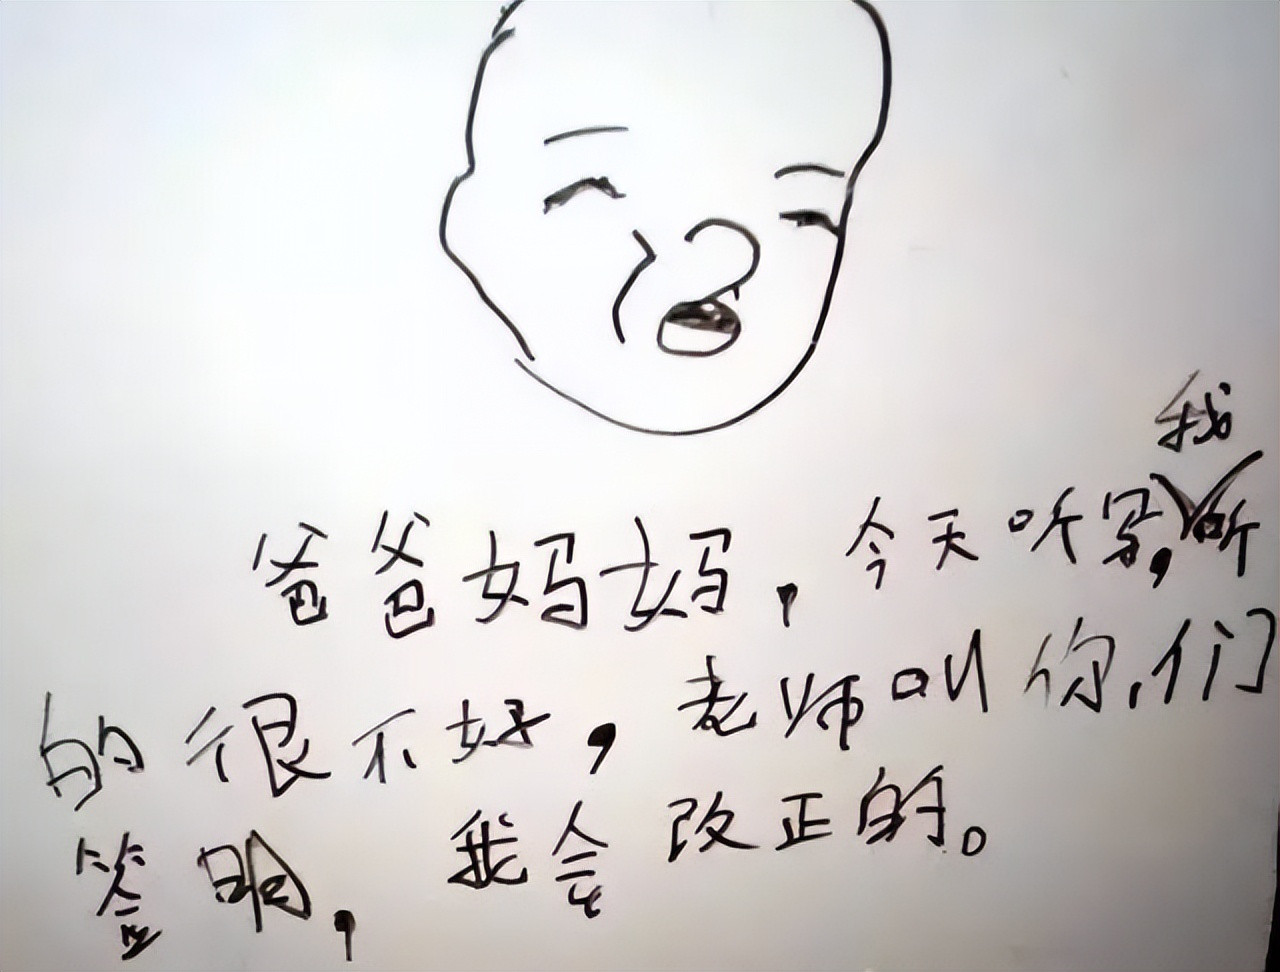 爸爸妈妈，今天听写，我听
的很不好，老师叫你们
签明，我会改正的。